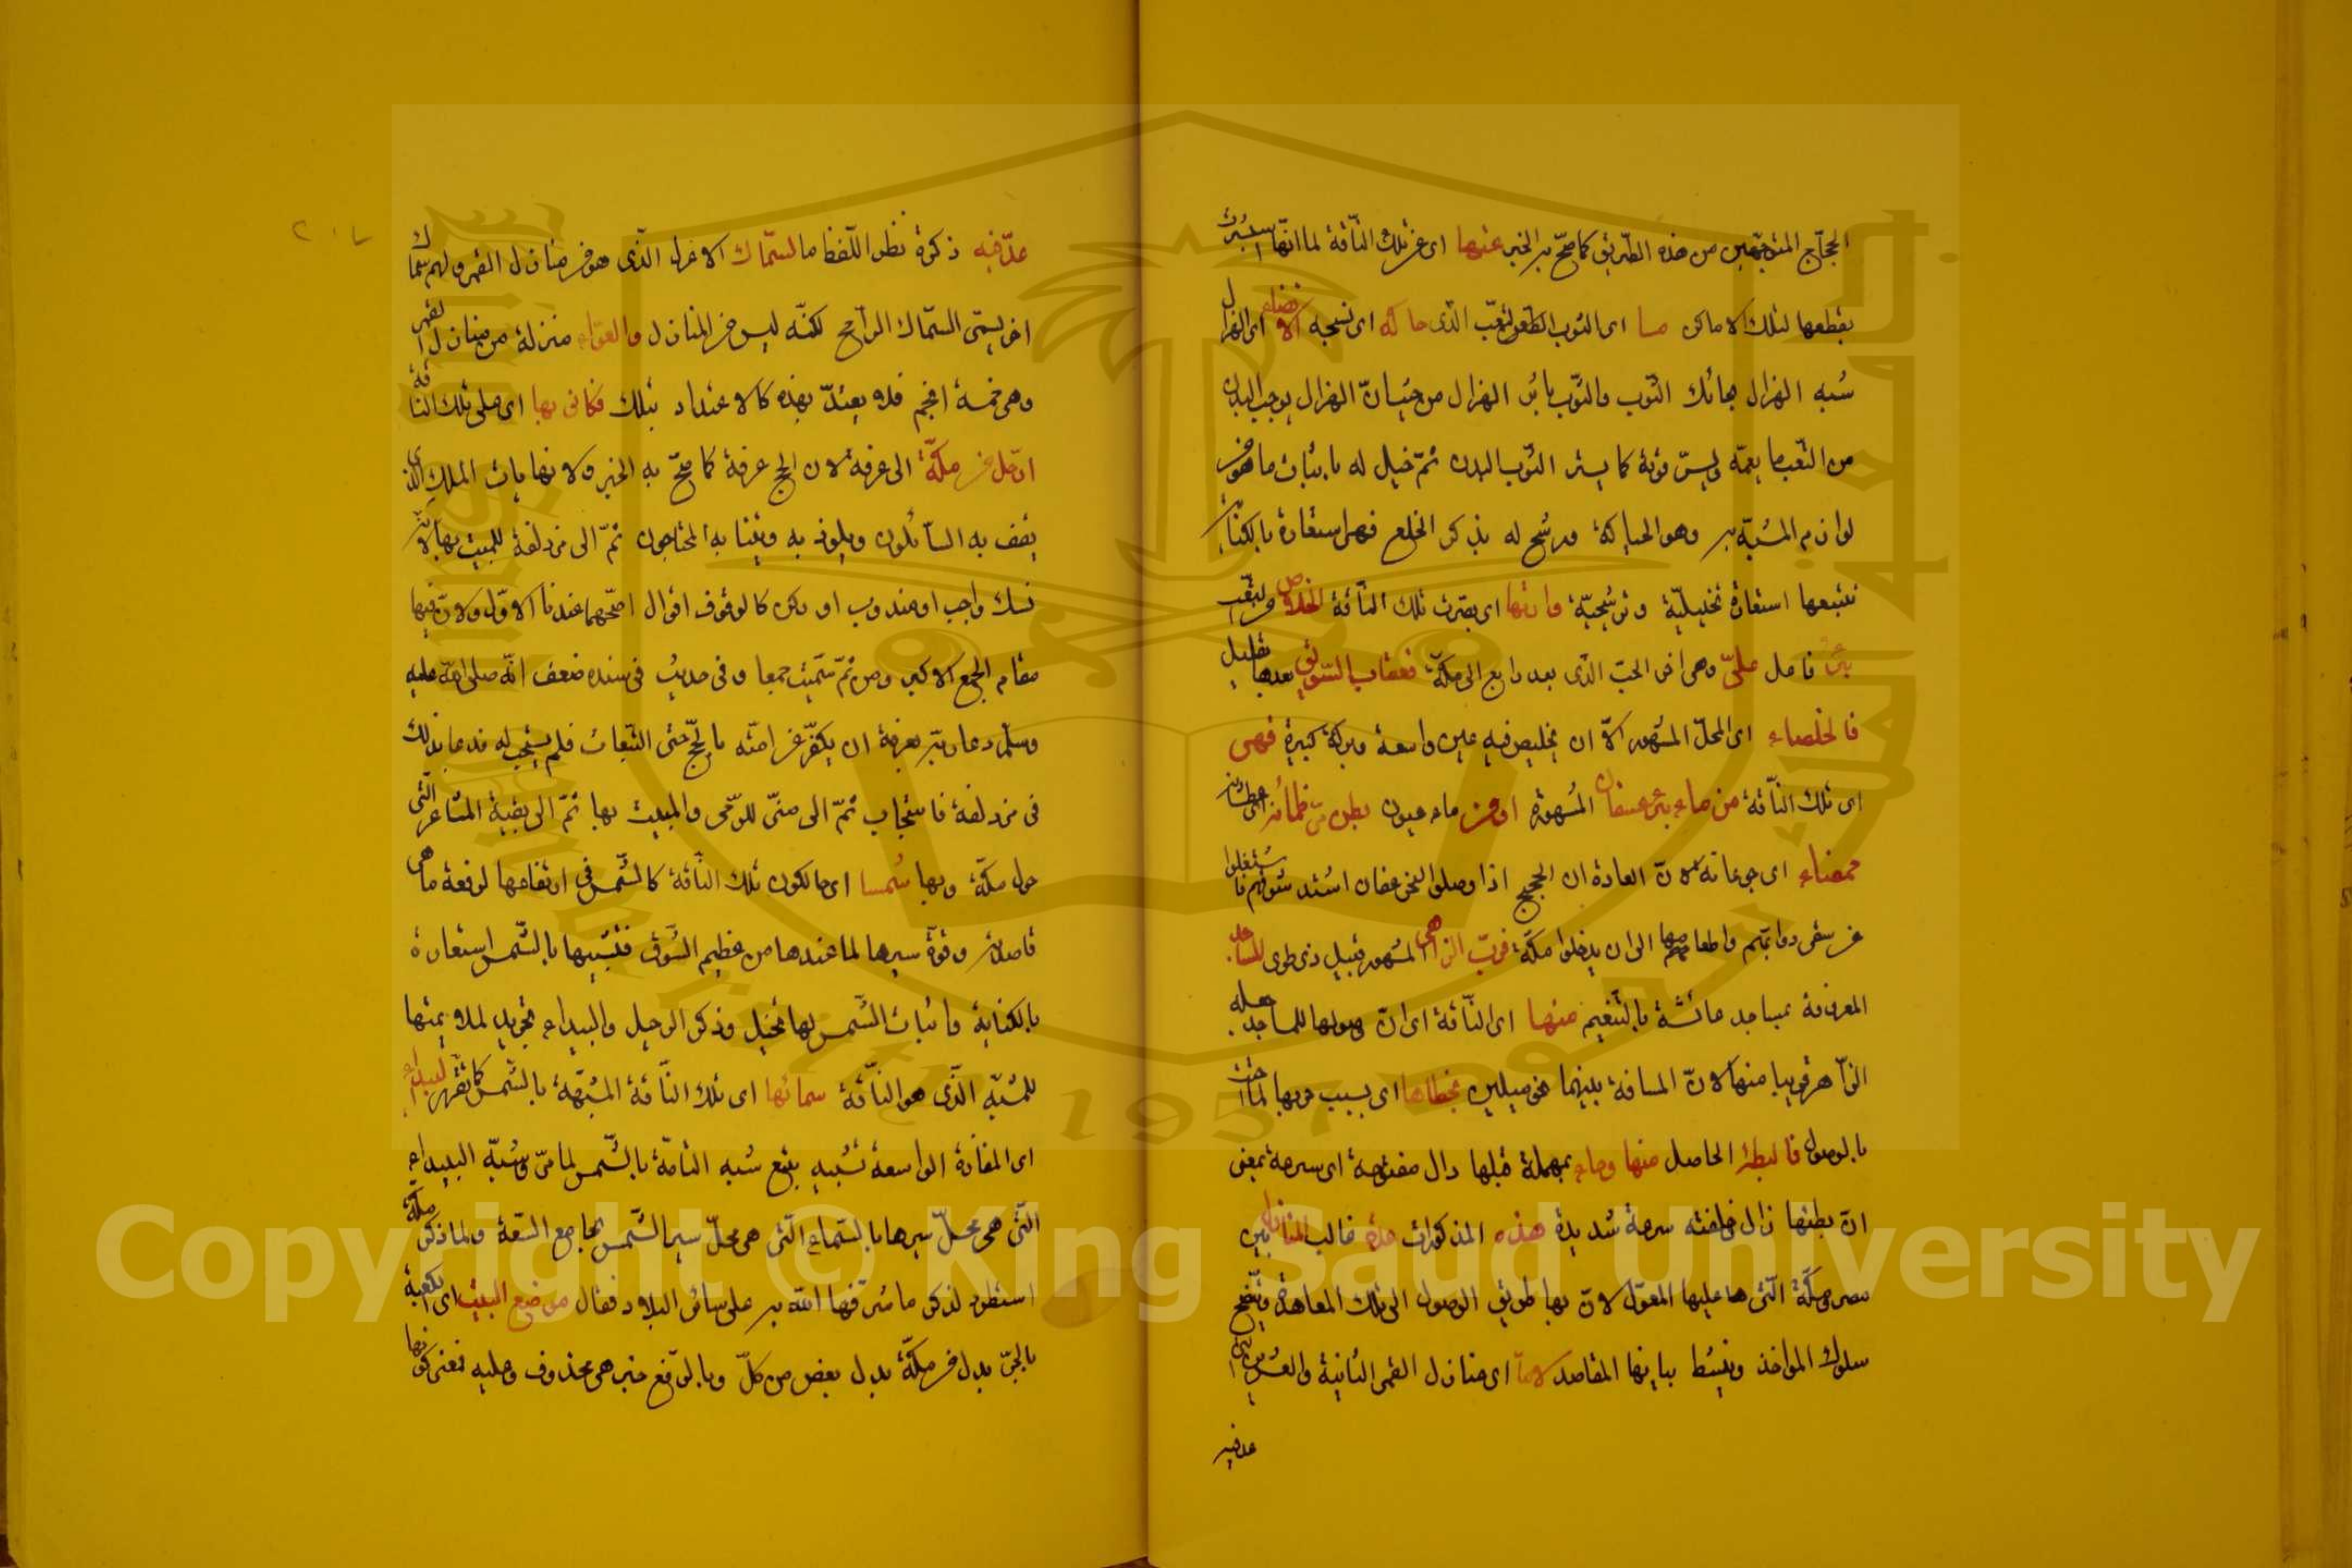 الحجاج المتوجهين من هذه الطريق كما صح به الخبر عنها اى عن تلك الناقة لما انها سترت
بقطعها لتلك الاماكن ما اى الثوب الذى حاكه اى نسجه الانضاء اى الهزال
شبه الهزال بحائك الثوب والثوب باثر الهزال من حيث ان الهزال يوجب للبدن
من التعب ما يعمه ويستر قوته كما يستر الثوب البدن ثم خيل له باثبات ما هو من
لوازم المشبه به وهو الحياكة ورشح له بذكر الخلع فهى استعارة بالكناية
تتبعها استعارة تخييلية وترشيحية وارتها اى بصرت تلك الناقة الخلاص من التعب
بئر فاعل على وهى اخر الحب الذى بعد رابغ الى مكة فعقاب السويق بعدها بقليل
فالخلصاء اى المحل المشهور الآن بخليص فيه عين واسعة وبركة كبيرة فهى
اى تلك الناقة من ماء بئر عسفان المشهورة او من ماء عيون بطن مر ظمآنة اى عطشانة
خمصاء اى جوعانة لان العادة ان الحجيج اذا وصلوا الى نحو عسفان اشتد شوقهم فاشتغلوا
عن سقى دوابهم واطعامهم الى ان يدخلوا مكة قرب الزاهر المشهور قبيل ذى طوى المساجد
المعروفة بمساجد عائشة بالتنعيم منها اى الناقة اى ان وصولها للمساجد جعله
الزاهر قريبا منها لان المسافة بينهما نحو ميلين بخطاها اى بسبب قربها لما اخذت
بالوصول فالبطؤ الحاصل منها وحاء بمهملة قبلها دال مفتوحة اى سرعة بمعنى
ان بطئها زال وخلفته سرعة شديدة هذه المذكورات عدة غالب المنازل بين
مصر ومكة التى عليها المعول لان بها طريق الوصول الى تلك المعاهد ويتضح
سلوك المواخذ وينبسط ببيانها المقاصد لا ما اى منازل القمر الثمانية والعشرين التى
عد فيه
عد فيه ذكره نظر اللفظ ما السماك الاعزل الذى هو من منازل القمر ولهم سماك
اخر يسمى السماك الرامح لكنه ليس من المنازل والعواء منزلة من منازل القمر
وهى خمسة انجم فلا يعتد بهذه كالاعتداد بتلك فكانى بها اى على تلك الناقة
ارحل من مكة الى عرفة لان الحج عرفة كما صح به الخبر ولانها باب الملك الذى
يقف به السائلون ويلوذ به وينتابه المحتاجون ثم الى مزدلفة للمبيت بها لانه
نسك واجب او مندوب او ركن كالوقوف اقوال اصحهما عندنا الاول ولان فيها
مقام الجمع الاكبر ومن ثم سميت جمعا وفى حديث فى سنده ضعف انه صلى الله عليه
وسلم دعا ربه بعرفة ان يكفر عن امته بالحج حتى التبعات فلم يستجب له فدعا بذلك
فى مزدلفة فاستجاب ثم الى منى للرمى والمبيت بها ثم الى بقية المشاعر التى
حول مكة وبها شمسا اى حال كون تلك الناقة كالشمس فى ارتفاعها لرفعة ما هى
قاصدته وقوة سيرها لما عندها من عظيم الشوق فتشبيهها بالشمس استعارة
بالكناية واثبات الشمس لها تخييل وذكر الرحيل والبيداء تجريد لملاءمتها
للمشبه الذى هو الناقة سمائها اى تلك الناقة المشبهة بالشمس كما تقرر البيداء
اى المفازة الواسعة تشبيه يتبع شبه الناقة بالشمس لما مر وشبه البيداء
التى هى محل سيرها بالسماء التى هى محل سير الشمس بجامع السعة ولما ذكر مكة
استطرد لذكر ما شرفها الله به على سائر البلاد فقال موضع البيت اى الكعبة
بالجر بدل من مكة بدل بعض من كل وبالرفع خبر هى محذوف وعليه فمعنى كونها